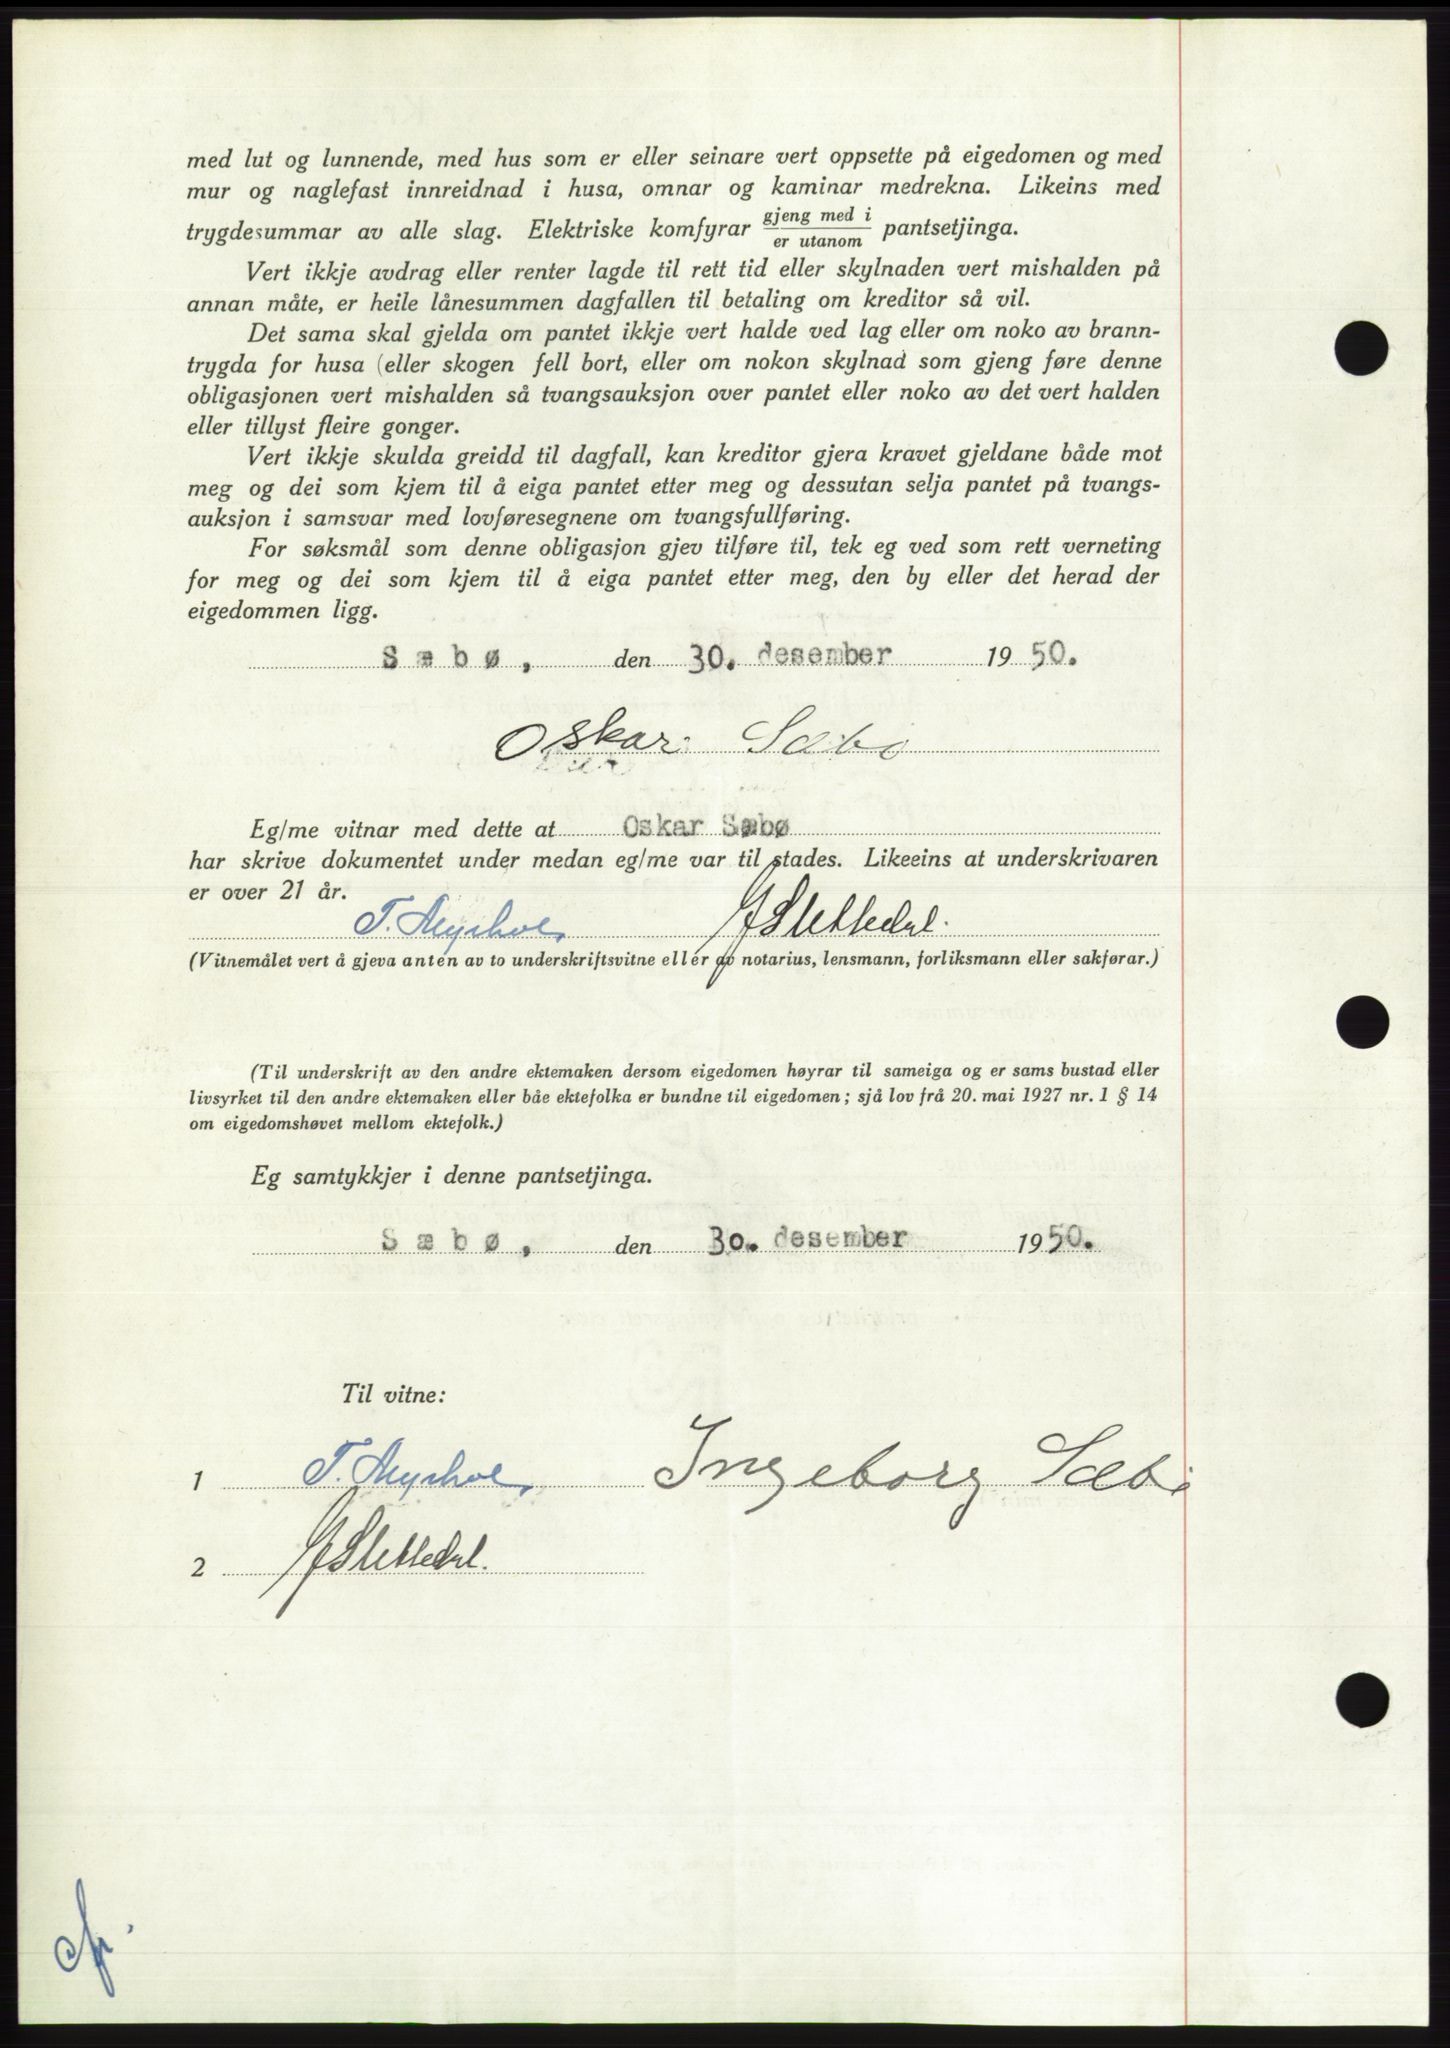 med lut og lunnende, med hus som er eller seinare vert oppsette på eigedomen og med
mur og naglefast innreidnad i husa, omnar og kaminar medrekna. Likeins med
trygdesummar av alle slag. Elektriske komfyrar gjeng med i / er utanom pantsetjinga.
Vert ikkje avdrag eller renter lagde til rett tid eller skylnaden vert mishalden på
annan måte, er heile lånesummen dagfallen til betaling om kreditor så vil.
Det sama skal gjelda om pantet ikkje vert halde ved lag eller om noko av brann-
trygda for husa (eller skogen fell bort, eller om nokon skylnad som gjeng føre denne
obligasjonen vert mishalden så tvangsauksjon over pantet eller noko av det vert halden
eller tillyst fleire gonger.
Vert ikkje skulda greidd til dagfall, kan kreditor gjera kravet gjeldane både mot
meg og dei som kjem til å eiga pantet etter meg og dessutan selja pantet på tvangs-
auksjon i samsvar med lovføresegnene om tvangsfullføring.
For søksmål som denne obligasjon gjev tilføre til, tek eg ved som rett verneting
for meg og dei som kjem til å eiga pantet etter meg, den by eller det herad der
eigedommen ligg.
Sæbø, den 30. desember 1950.
Oskar Sæbø
Eg/me vitnar med dette at Oskar Sæbø
har skrive dokumentet under medan eg/me var til stades. Likeeins at underskrivaren
er over 21 år.
(Vitnemålet vert å gjeva anten av to underskriftsvitne eller av notarius, lensmann, forliksmann eller sakførar.)
(Til underskrift av den andre ektemaken dersom eigedomen høyrar til sameiga og er sams bustad eller
livsyrket til den andre ektemaken eller båe ektefolka er bundne til eigedomen; sjå lov frå 20. mai 1927 nr. 1 § 14
om eigedomshøvet mellom ektefolk.)
Eg samtykkjer i denne pantsetjinga.
Sæbø, den 30. desember 1950.
Til vitne:
1 Ingeborg Sæbø
2